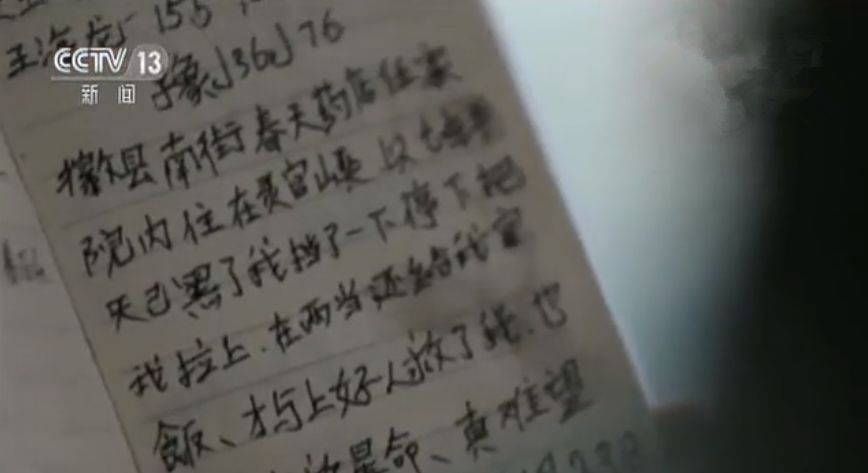 王海龙 155
CCTV 13
新闻
子象J36J76
徽县南街春天药店住家
院内住在灵官峡以
天已黑了我挡了一下停下把
我拉上.在两当还给我买
饭、才与上好人救了我.
命、真难望